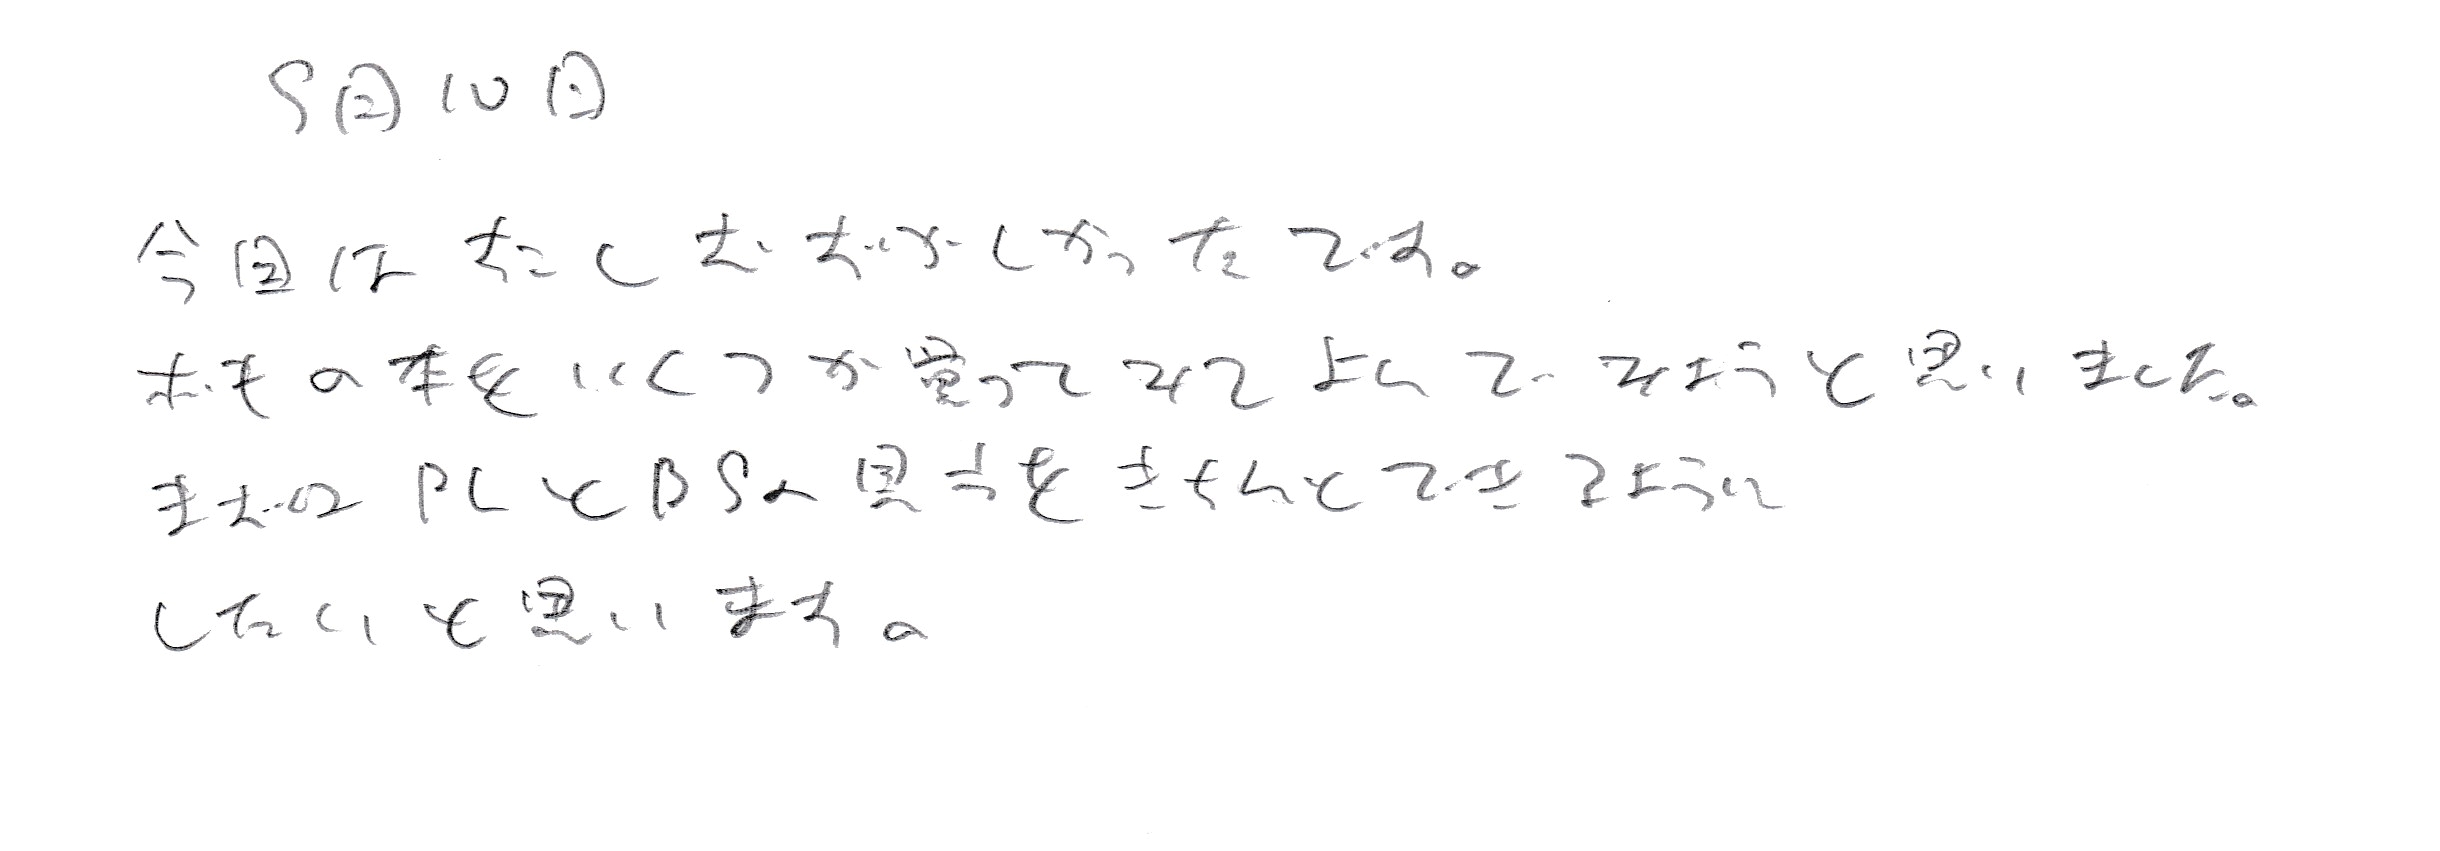 5月10日
今回は少しむずかしかったです。
の本をいくつか買ってみてよんでみようと思いました。
まずは PLとBSの見方をきちんとできるように
したいと思います。